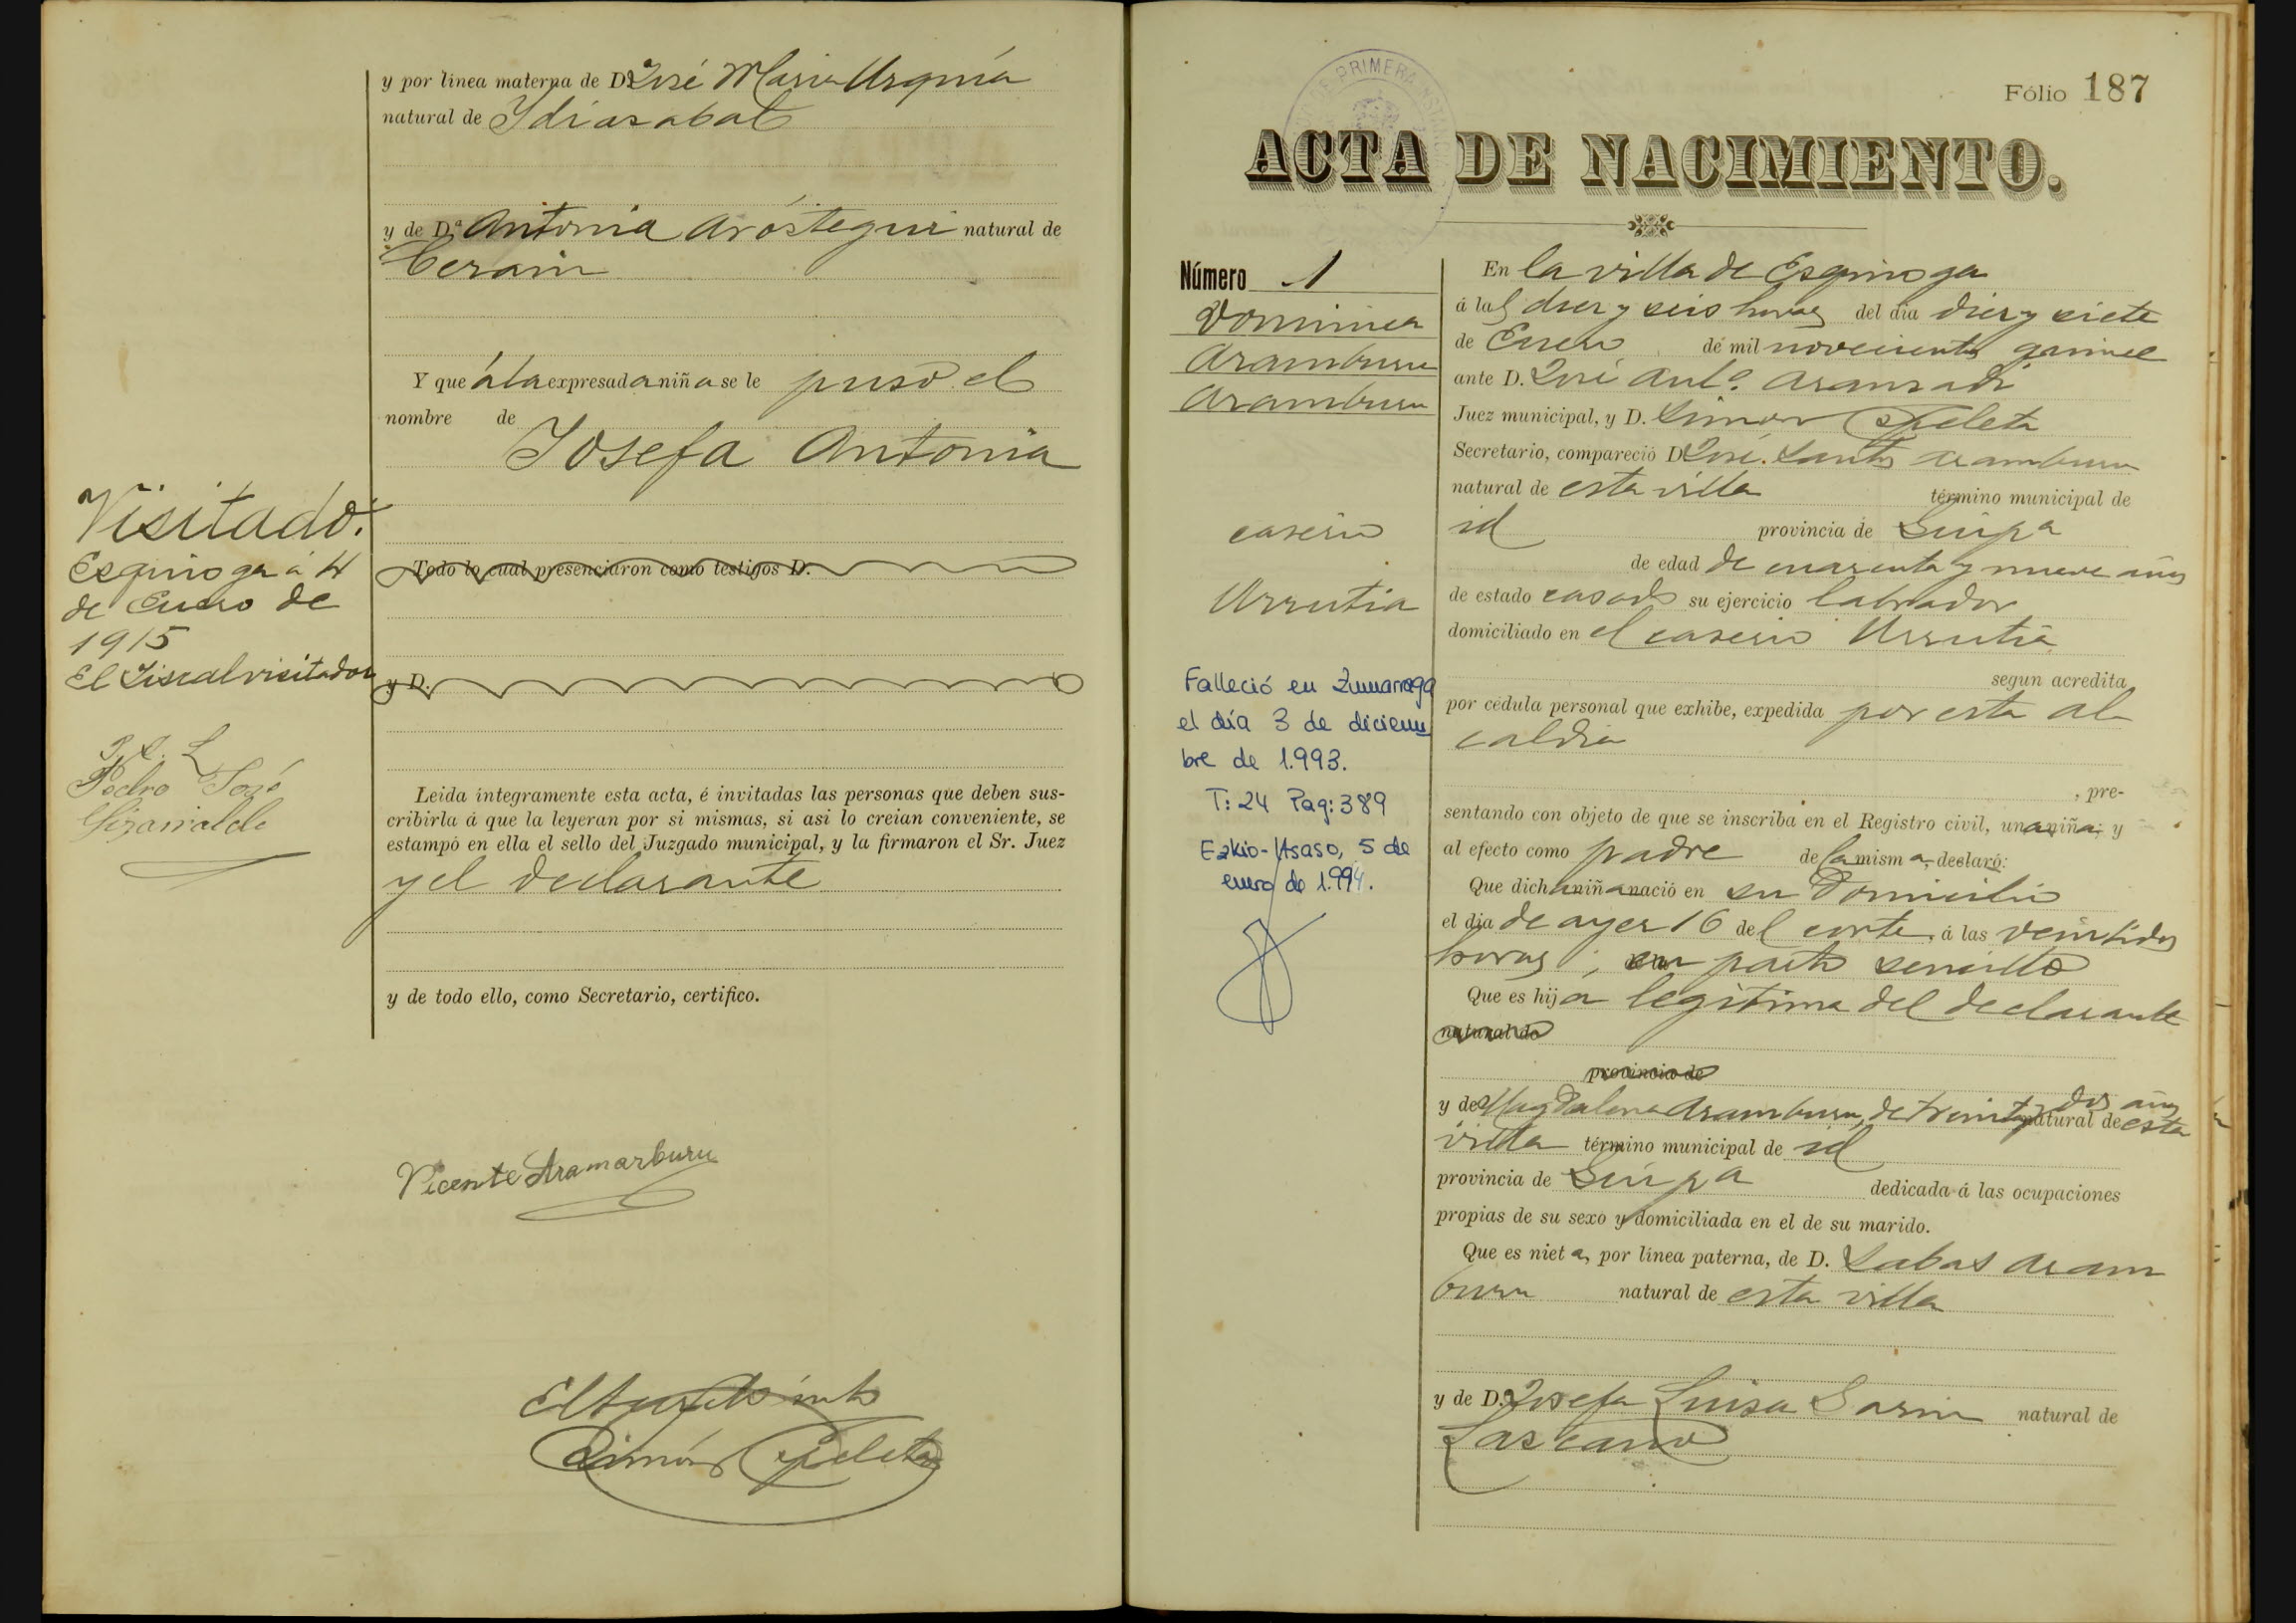 y por línea materna de D. José Maria Urquía
natural de Ydiazabal
y de D.ª Antonia Aróstegui natural de
Cerain
Y que á la expresada niña se le puso el
nombre de
Josefa Antonia
Visitado.
Ezquioga á 4
de Enero de
1915
El Fiscal visitador
Pedro José
Todo lo cual presenciaron como testigos D.
y D.
Leida íntegramente esta acta, é invitadas las personas que deben sus-
cribirla á que la leyeran por si mismas, si asi lo creian conveniente, se
estampó en ella el sello del Juzgado municipal, y la firmaron el Sr. Juez
y el declarante
y de todo ello, como Secretario, certifico.
Vicente Aramarburu
Simón
Fólio 187
ACTA DE NACIMIENTO.
Número 1
Dominica
Aramburu
Aramburu
caserio
Urrutia
Falleció en Zumarraga
el día 3 de diciem
bre de 1.993.
T: 24 Pag: 389
Ezkio-Itsaso, 5 de
enero de 1.994.
En la villa de Ezquioga
á las diez y seis horas del dia diez y siete
de Enero de mil novecientos quince
ante D. José Ant.º Aranzadi
Juez municipal, y D. Simon
Secretario, compareció D. José Santos Aramburu
natural de esta villa término municipal de
id provincia de Guipa
de edad de cuarenta y nueve años
de estado casado su ejercicio labrador
domiciliado en el caserio Urrutia
segun acredita
por cédula personal que exhibe, expedida por esta al
caldia
, pre-
sentando con objeto de que se inscriba en el Registro civil, una niña; y
al efecto como padre de la misma, declaró:
Que dicha niña nació en su domicilio
el dia de ayer 16 del corte, á las veintidos
horas; en parto sencillo
Que es hija legitima del declarante
natural de
provincia de
y de Magdalena Aramburu, de treinta y dos años natural de esta
villa término municipal de id
provincia de Guipa dedicada á las ocupaciones
propias de su sexo y domiciliada en el de su marido.
Que es nieta, por línea paterna, de D. Sabas Aram
buru natural de esta villa
y de D. Josefa Luisa Sarin natural de
Lazcano